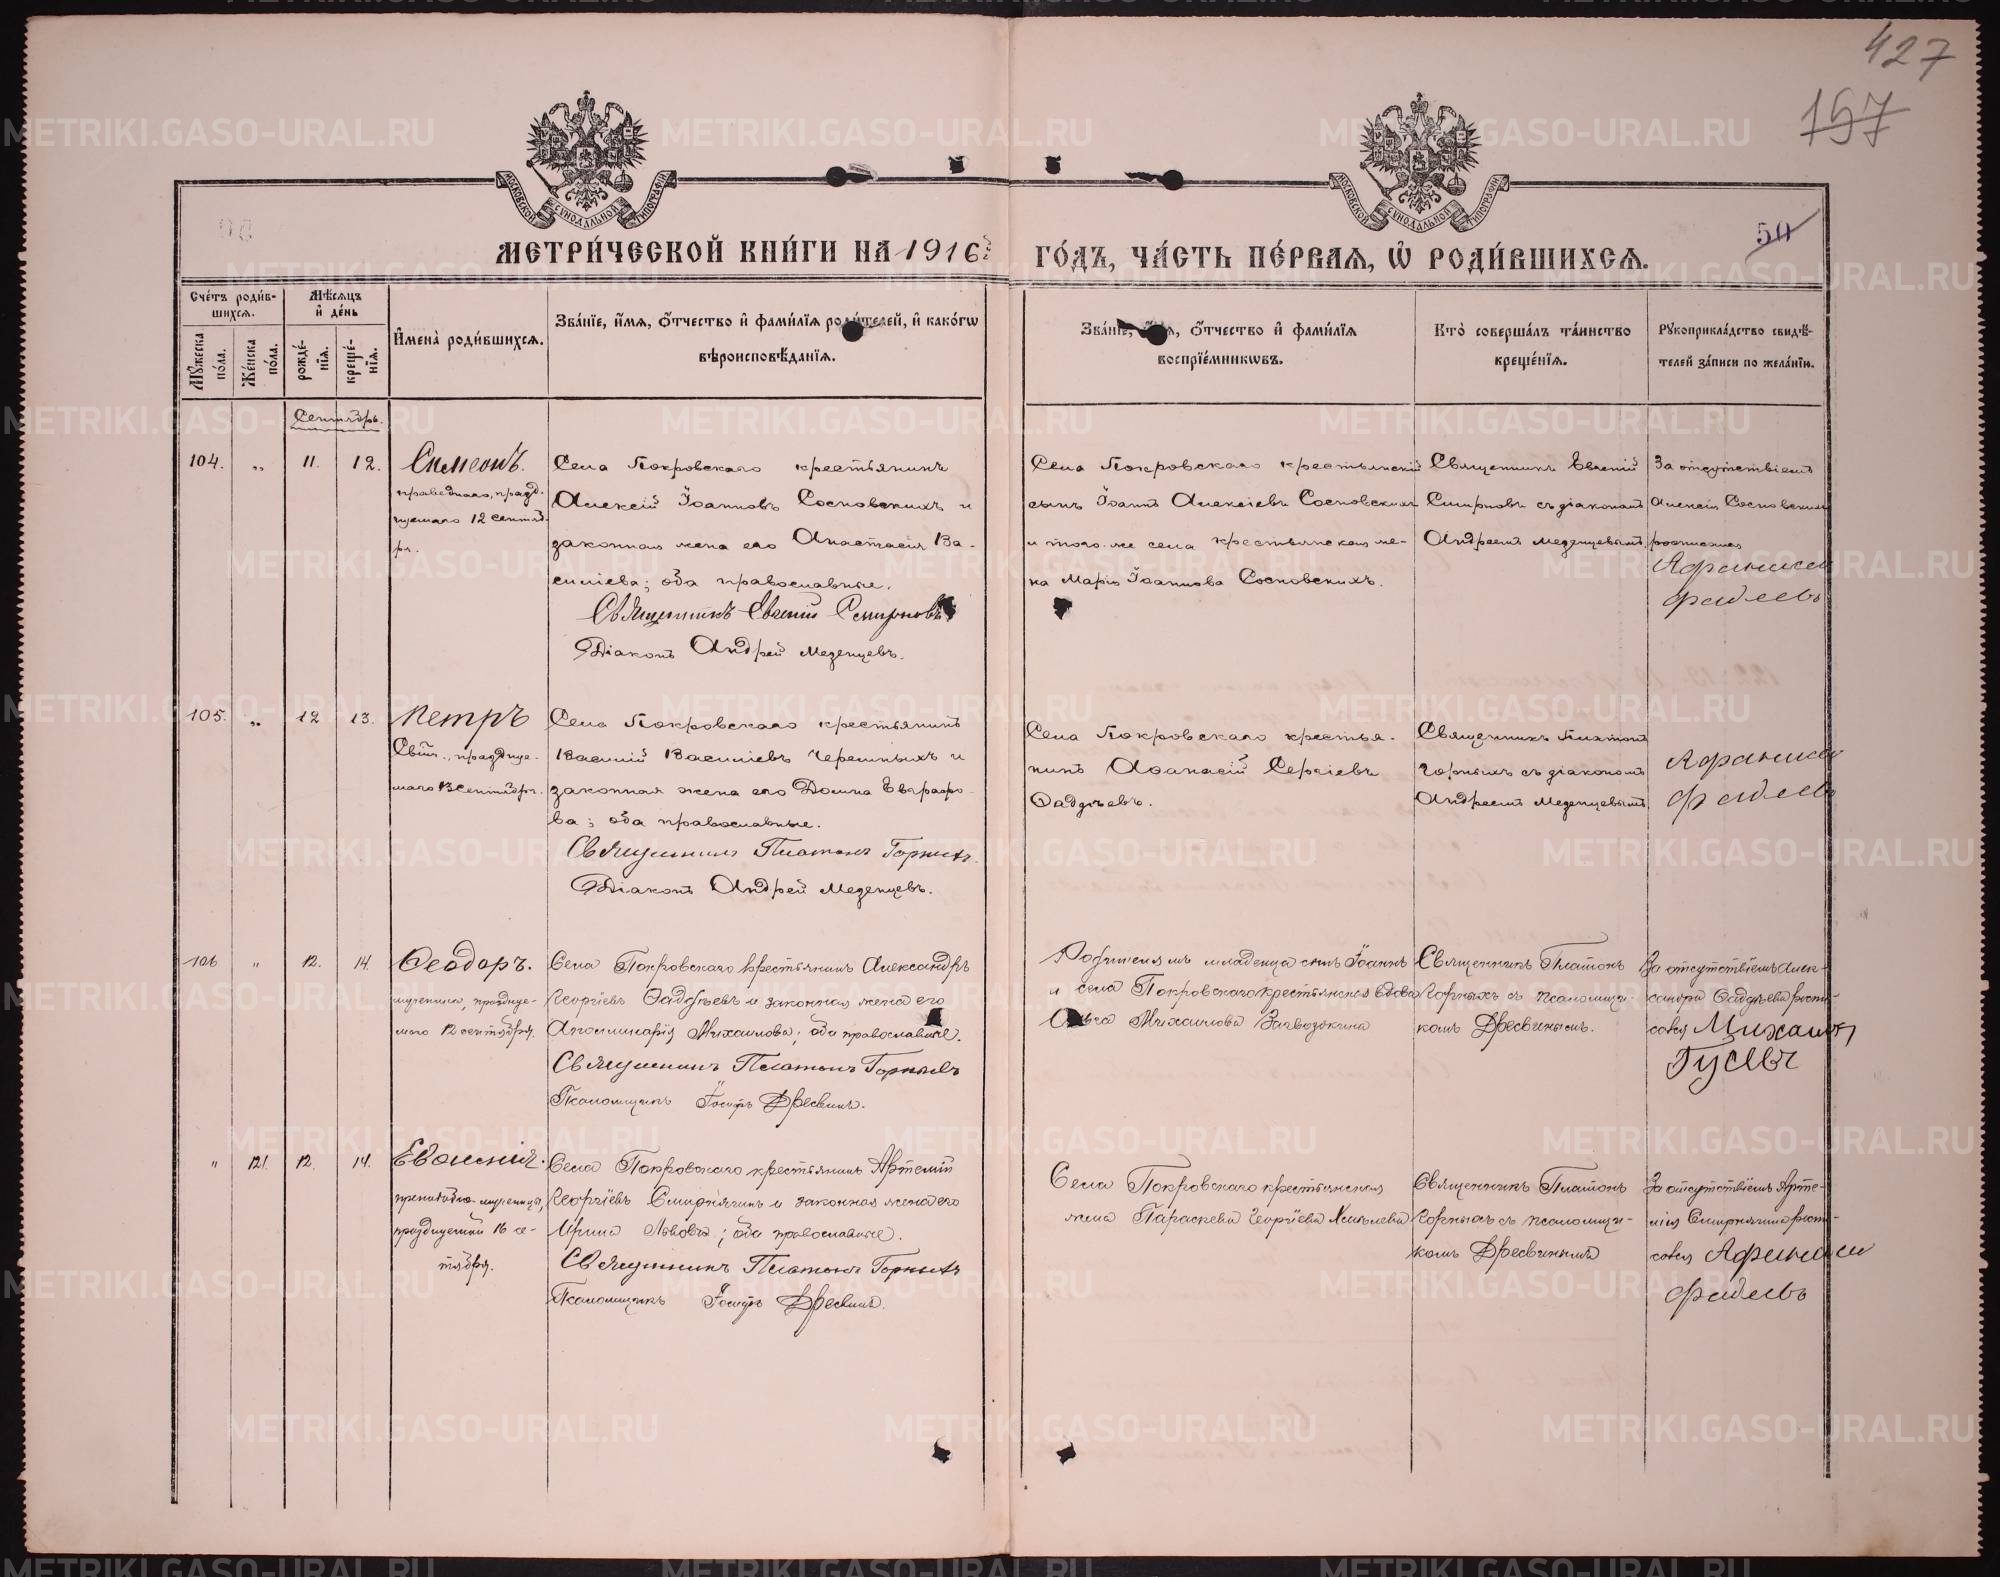 427
157
50
МОСКОВСКОЙ СѴНОДАЛЬНОЙ ТИПОГРАФІИ
МОСКОВСКОЙ СѴНОДАЛЬНОЙ ТИПОГРАФІИ
МЕТРИ́ЧЕСКОЙ КНИ́ГИ НА 1916 ГО́ДЪ, ЧА́СТЬ ПЕ́РВАѦ, Ѡ҆ РОДИ́ВШИХСѦ.
Сче́тъ роди́в-
шихсѧ.
Мꙋ́жеска
по́ла.
Же́нска
по́ла.
Мѣ́сѧцъ
и҆ де́нь
рожде́-
нїѧ.
креще́-
нїѧ.
И҆мена̀ роди́вшихсѧ.
Зва́нїе, и҆́мѧ, ѻ҆́тчество и҆ фами́лїѧ роди́телей, и҆ како́гѡ
вѣроисповѣ́данїѧ.
Зва́нїе, и҆́мѧ, ѻ҆́тчество и҆ фами́лїѧ
воспрїе́мникѡвъ.
Кто̀ соверша́лъ та́инство
креще́нїѧ.
Рꙋкоприкла́дство свидѣ́-
телей за́писи по жела́нїю.
Сентябрь.
104. „ 11. 12.
Симеонъ.
праведнаго, празд-
нуемаго 12 сентяб-
ря.
Села Покровскаго крестьянинъ
Алексій Іоанновъ Сосновскихъ и
законная жена его Анастасія Ва-
силіева; оба православные.
Священникъ Евгеній Смирновъ
Діаконъ Андрей Меденцевъ.
Села Покровскаго крестьянскій
сынъ Іоаннъ Алексіевъ Сосновскихъ
и того-же села крестьянская же-
на Марія Іоаннова Сосновскихъ.
Священникъ Евгеній
Смирновъ съ діакономъ
Андреемъ Меденцевымъ.
За отсутствіемъ
Алексія Сосновскихъ
росписался
Афанасій
Фадеевъ
105. „ 12 13.
Петръ
Свщ., праздну-
маго 13 сентября.
Села Покровскаго крестьянинъ
Василій Василіевъ Черемныхъ и
законная жена его Домна Евграфо-
ва; оба православные.
Священникъ Платонъ Горныхъ.
Діаконъ Андрей Меденцевъ.
Села Покровскаго крестья-
нинъ Аѳанасій Сергіевъ
Ѳаддѣевъ.
Священникъ Платонъ
Горныхъ съ діакономъ
Андреемъ Меденцевымъ.
Афанасій
Фадеевъ
106 „ 12. 14.
Ѳеодоръ.
мученика, праздну-
маго 12 сентября.
Села Покровскаго крестьянинъ Александръ
Георгіевъ Ѳаддѣевъ и законная жена его
Аполлинарія Михаилова; оба православные.
Священникъ Платонъ Горныхъ
Псаломщикъ Іосифъ Дресвинъ.
Родителямъ младенца сынъ Іоаннъ
и села Покровскаго крестьянская вдова
Ольга Михаилова Загвоздкина
Священникъ Платонъ
Горныхъ съ псаломщи-
комъ Дресвинымъ.
За отсутствіемъ Алек-
сандра Ѳаддѣева роспи-
сался Михаилъ
Гусевъ
„ 121. 12. 14.
Евѳимія.
преподобно-мученицы,
празднуемой 16 се-
нтября.
Села Покровскаго крестьянинъ Артемій
Георгіевъ Смирнягинъ и законная жена его
Ирина Львова; оба православные.
Священникъ Платонъ Горныхъ
Псаломщикъ Іосифъ Дресвинъ.
Села Покровскаго крестьянская
жена Параскева Георгіева
Священникъ Платонъ
Горныхъ съ псаломщи-
комъ Дресвинымъ
За отсутствіемъ Арте-
мія Смирнягина роспи-
сался Афанасій
Фадеевъ
METRIKI.GASO-URAL.RU